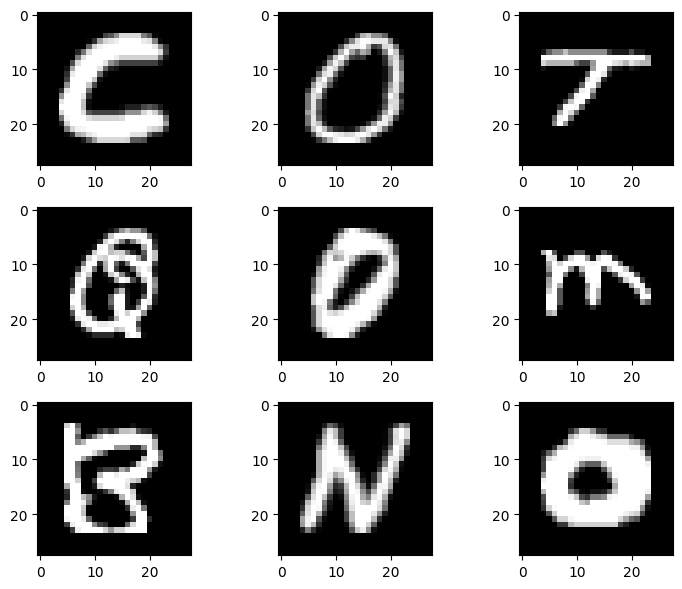 0
10
20
0 10 20
C
0
10
20
0 10 20
O
0
10
20
0 10 20
T
0
10
20
0 10 20
Q
0
10
20
0 10 20
O
0
10
20
0 10 20
m
0
10
20
0 10 20
B
0
10
20
0 10 20
N
0
10
20
0 10 20
O